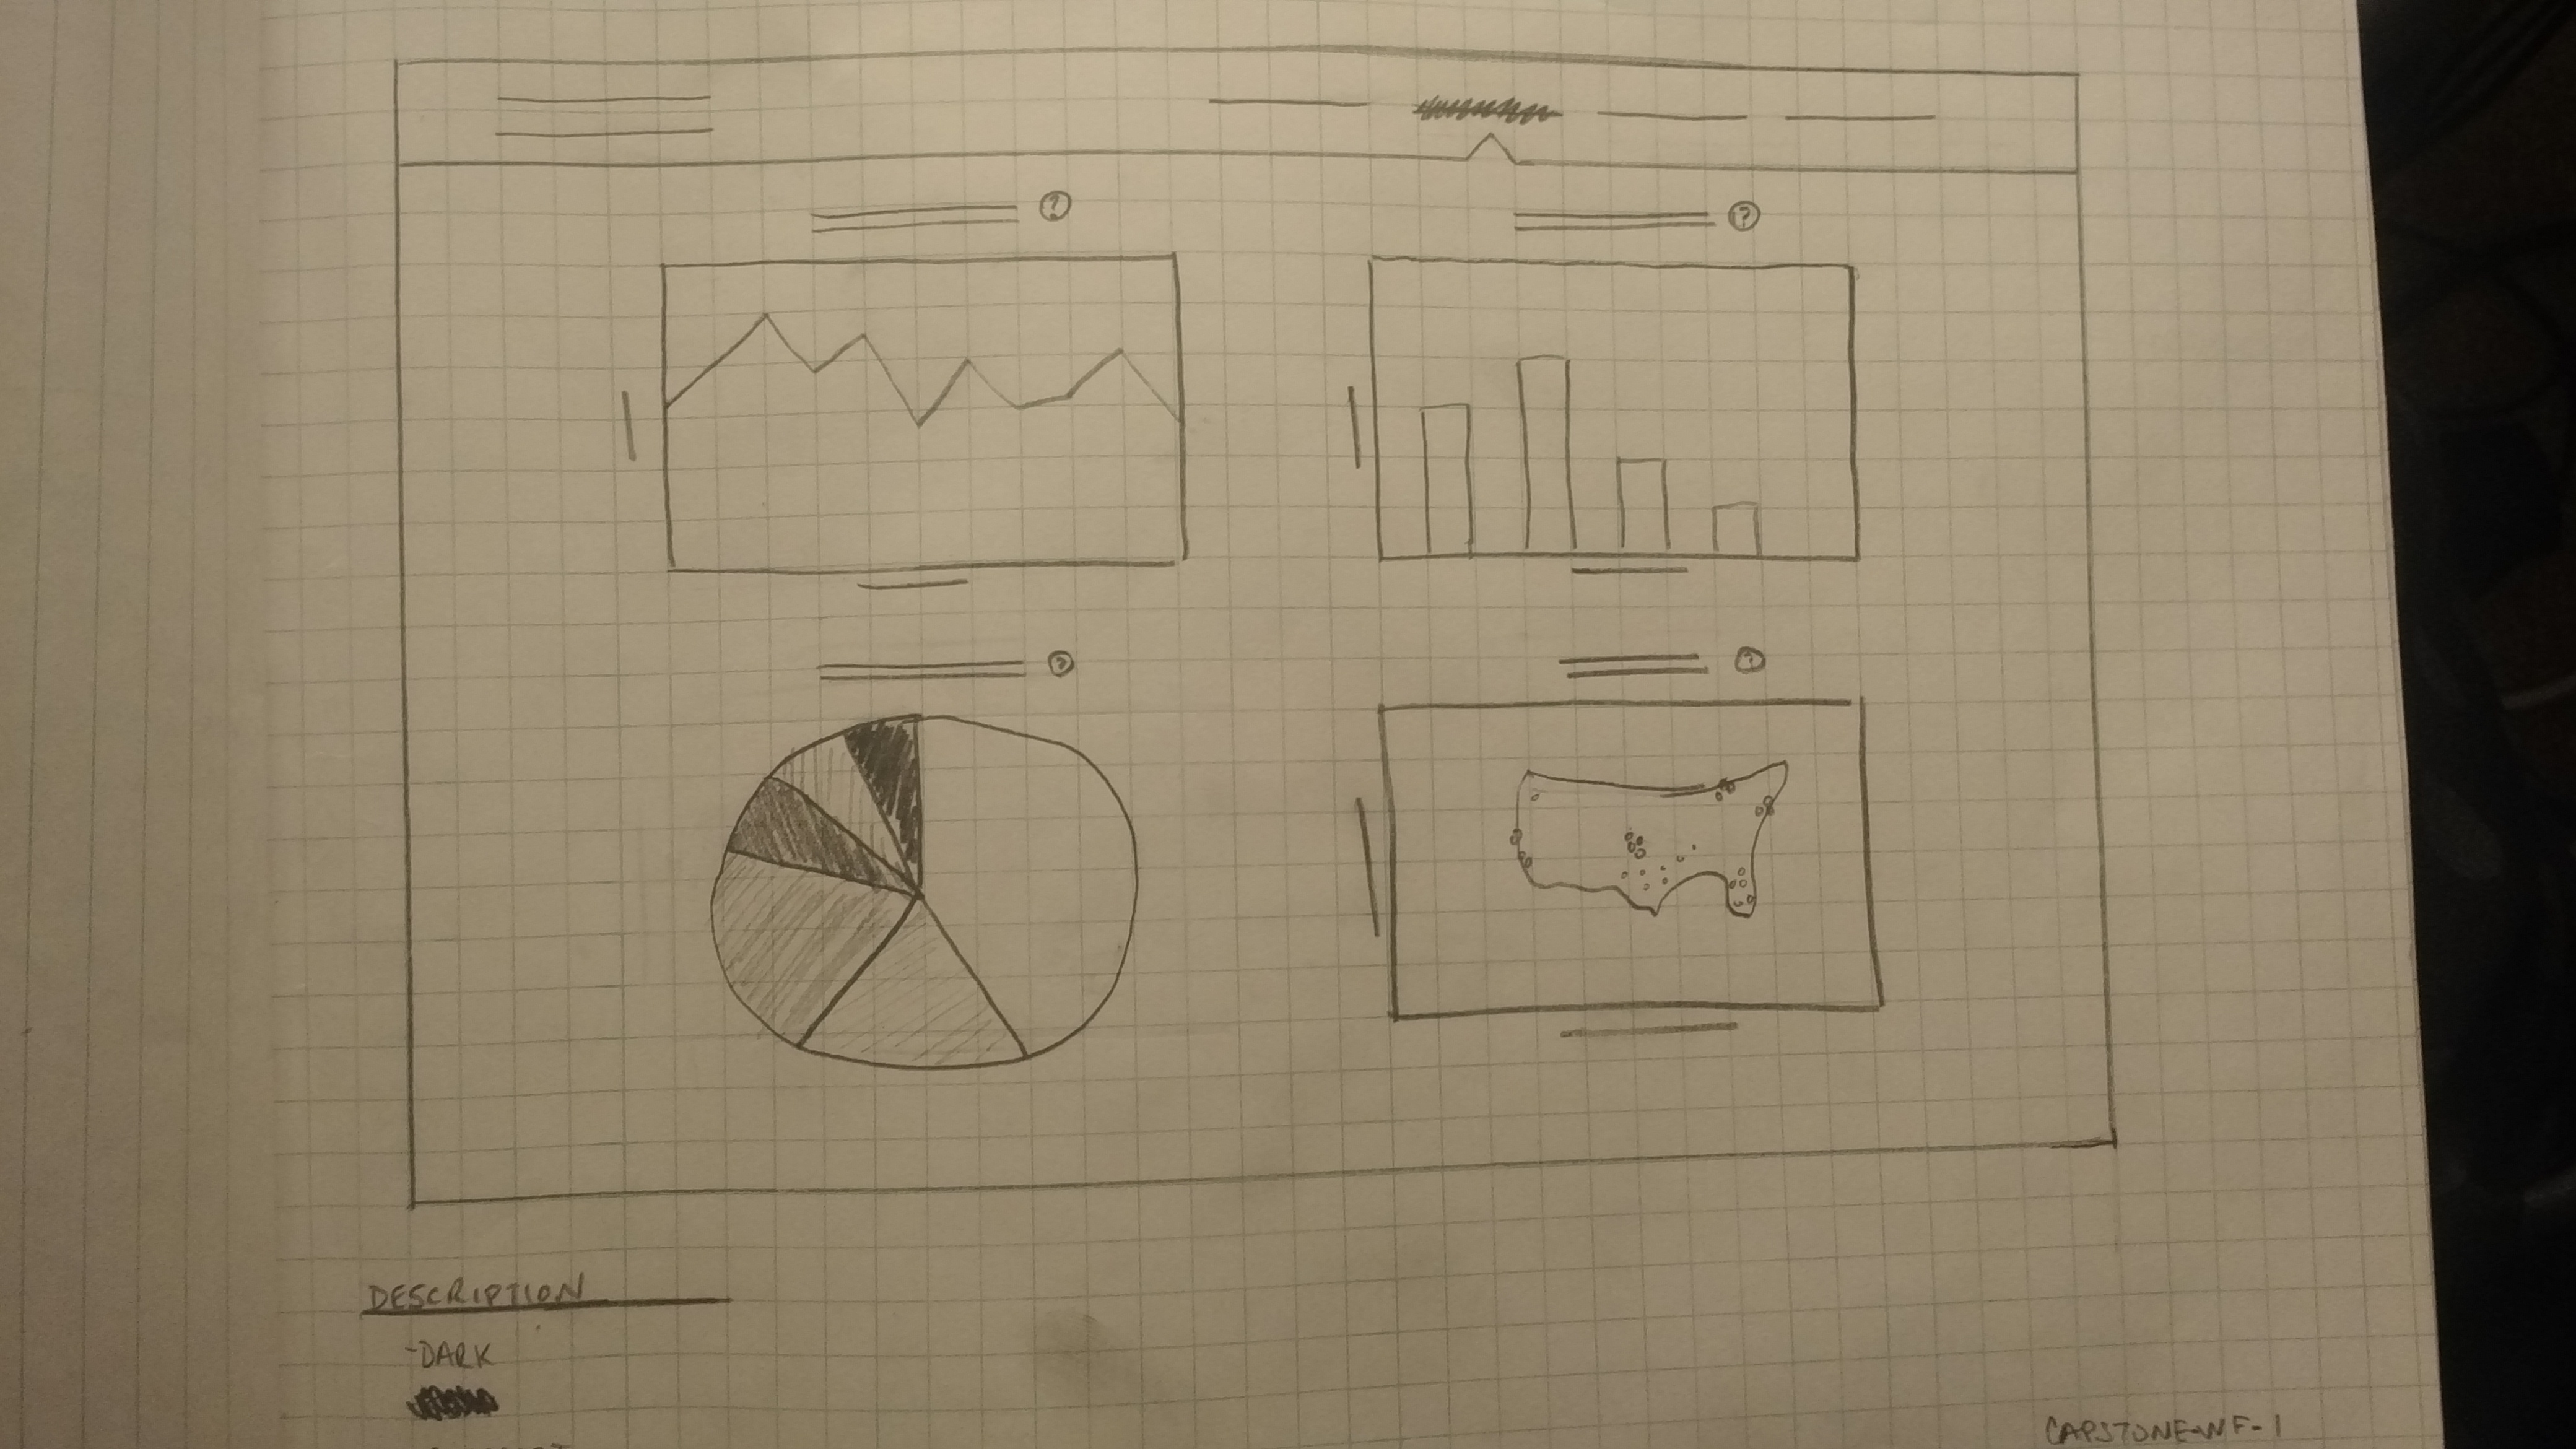 ?
?
?
?
DESCRIPTION
-DARK
CAPSTONE-WF-1